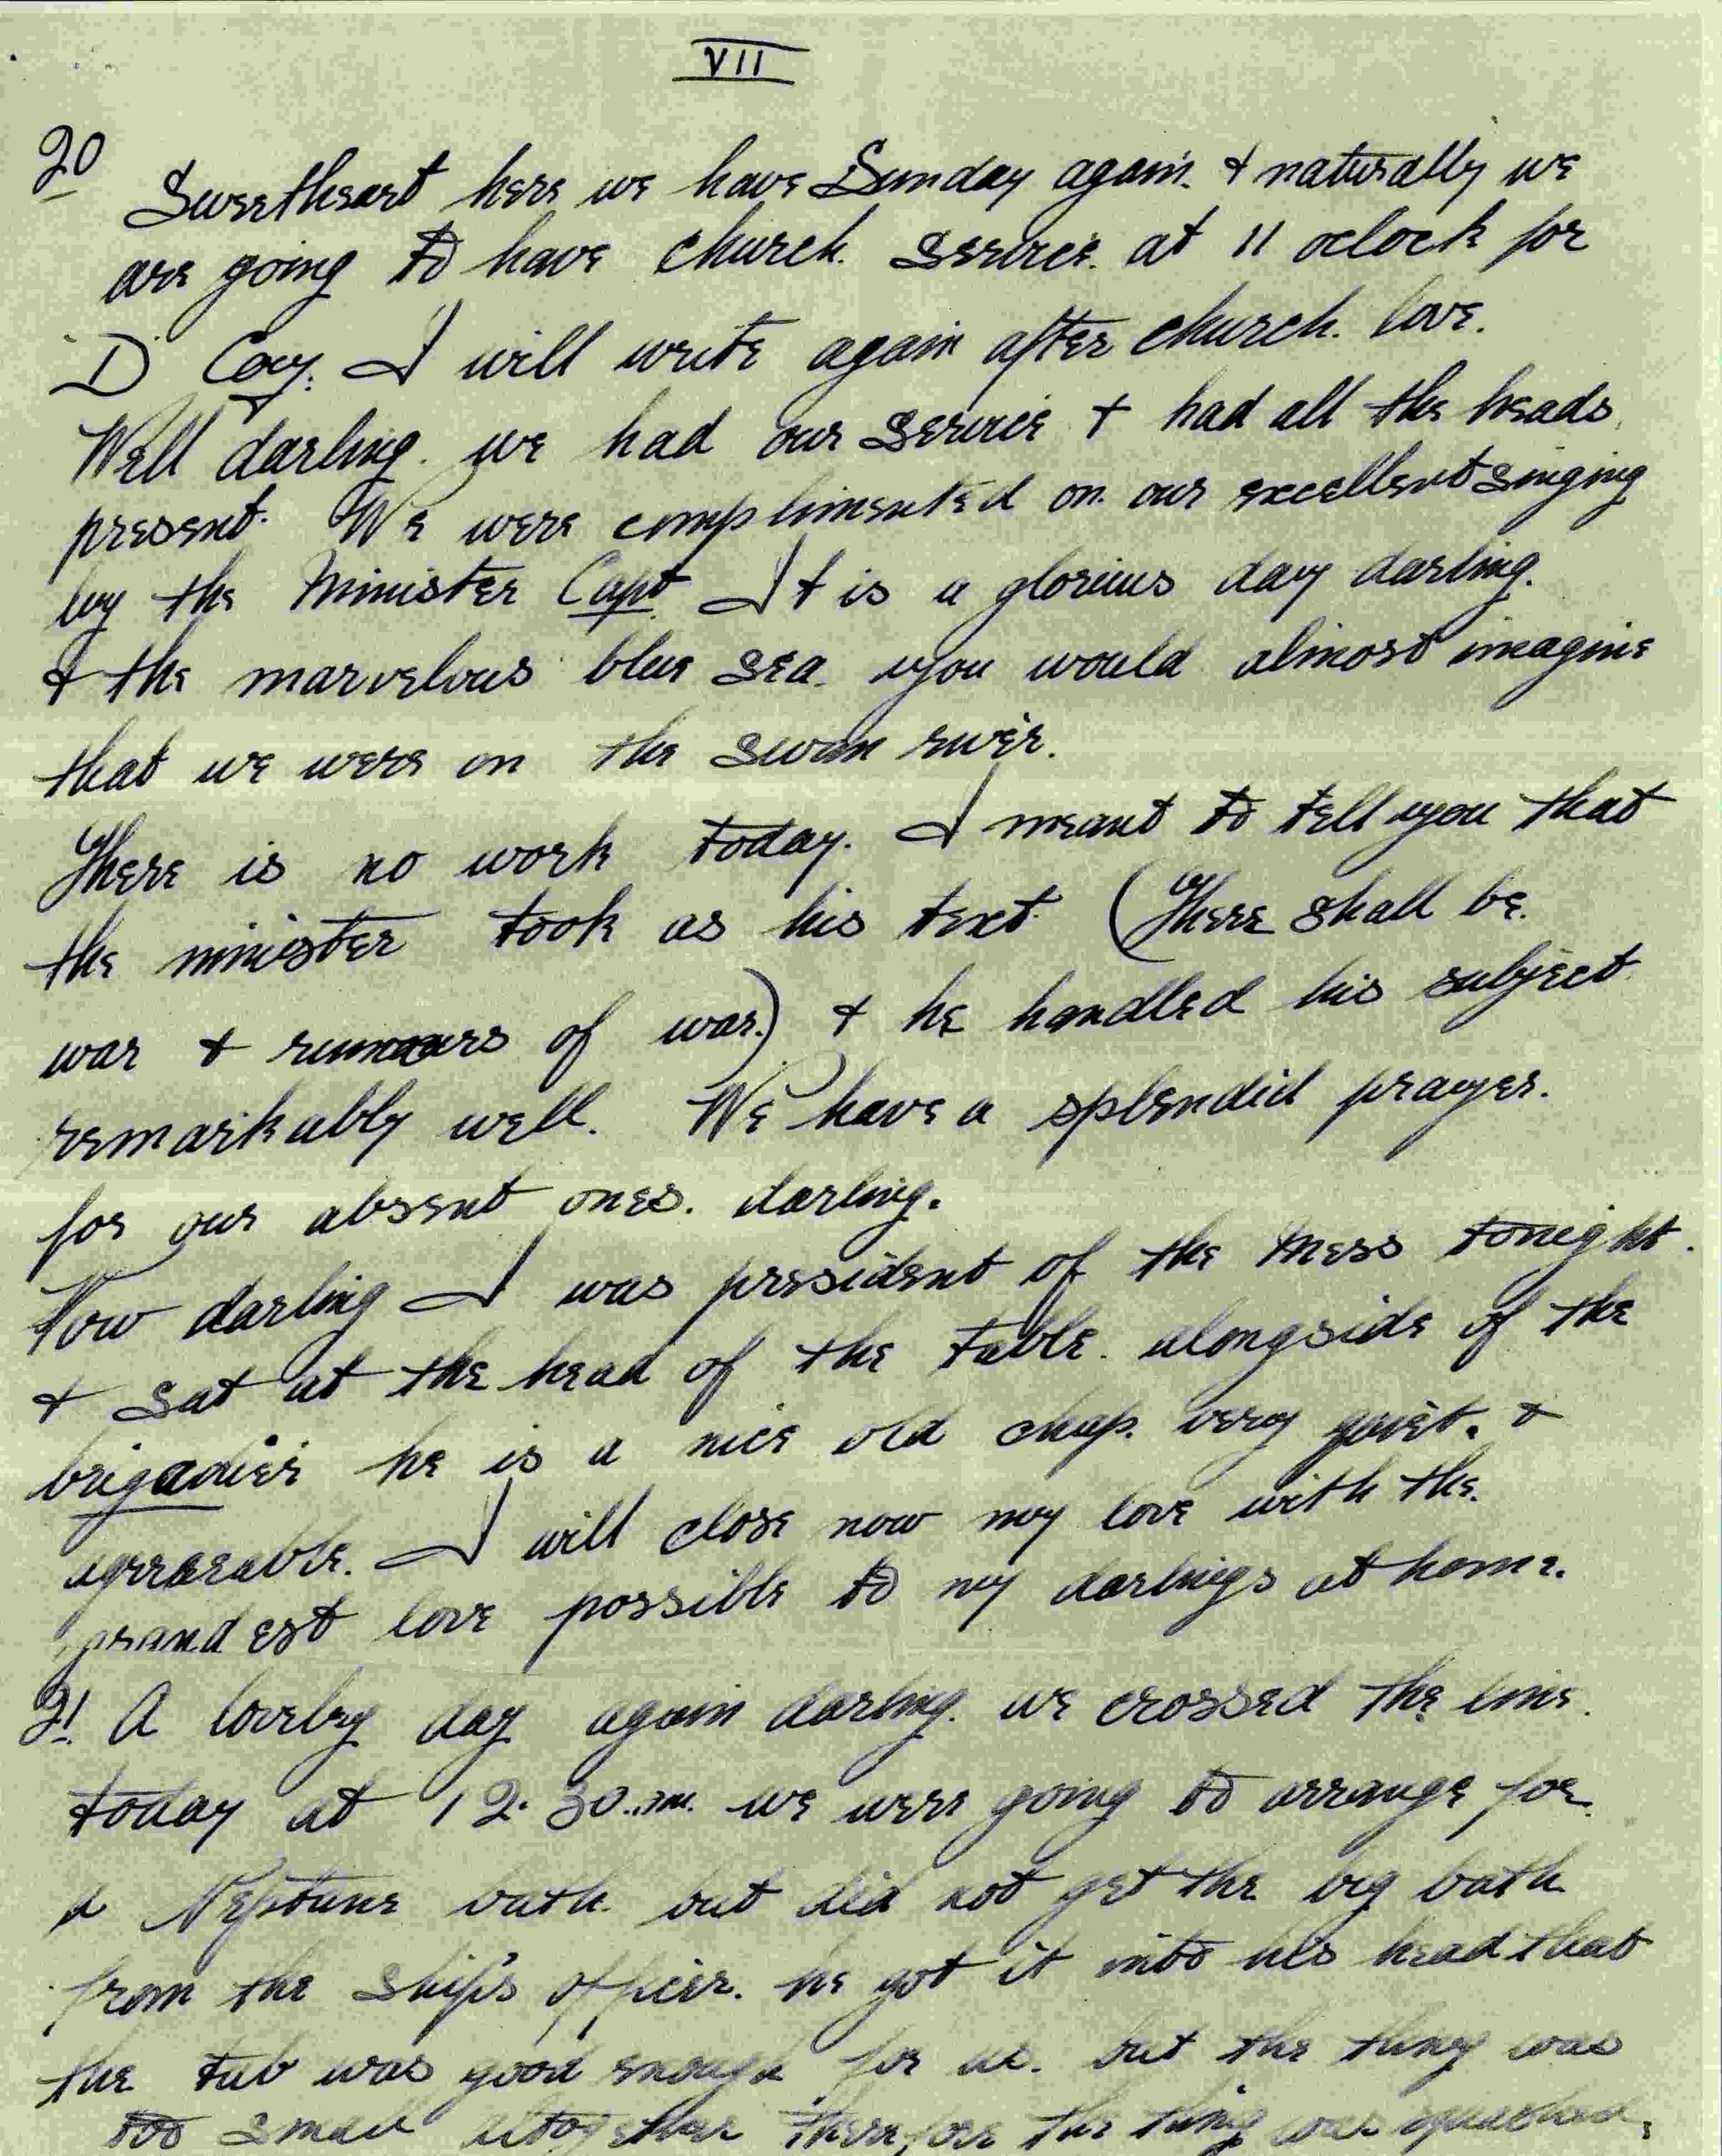 VII
20
Sweetheart here we have Sunday again. & naturally we
are going to have church. service. at 11 oclock for
D Coy. I will write again after church. love.
Well darling. we had our service & had all the heads
present. We were complimented on our excellent singing
by the Minister Capt. It is a glorious day darling.
& the marvelous blue sea. you would almost imagine
that we were on the Swan river.
There is no work today. I meant to tell you that
the minister took as his text (There shall be.
war & rumours of war.) & he handled his subject
remarkably well. We have a splendid prayer.
for our absent ones. darling.
Now darling I was president of the mess tonight.
& sat at the head of the table. alongside of the
brigadier he is a nice old chap. very quiet. &
agreeable. I will close now my love with the.
grandest love possible to my darlings at home.
21. A lovely day again darling. we crossed the line.
today at 12.30 we were going to arrange for
a Neptune bath. but did not get the big bath
from the ship's officer. he got it into his head that
the tub was good enough for us. but the thing was
too small altogether therefore the thing was squashed.